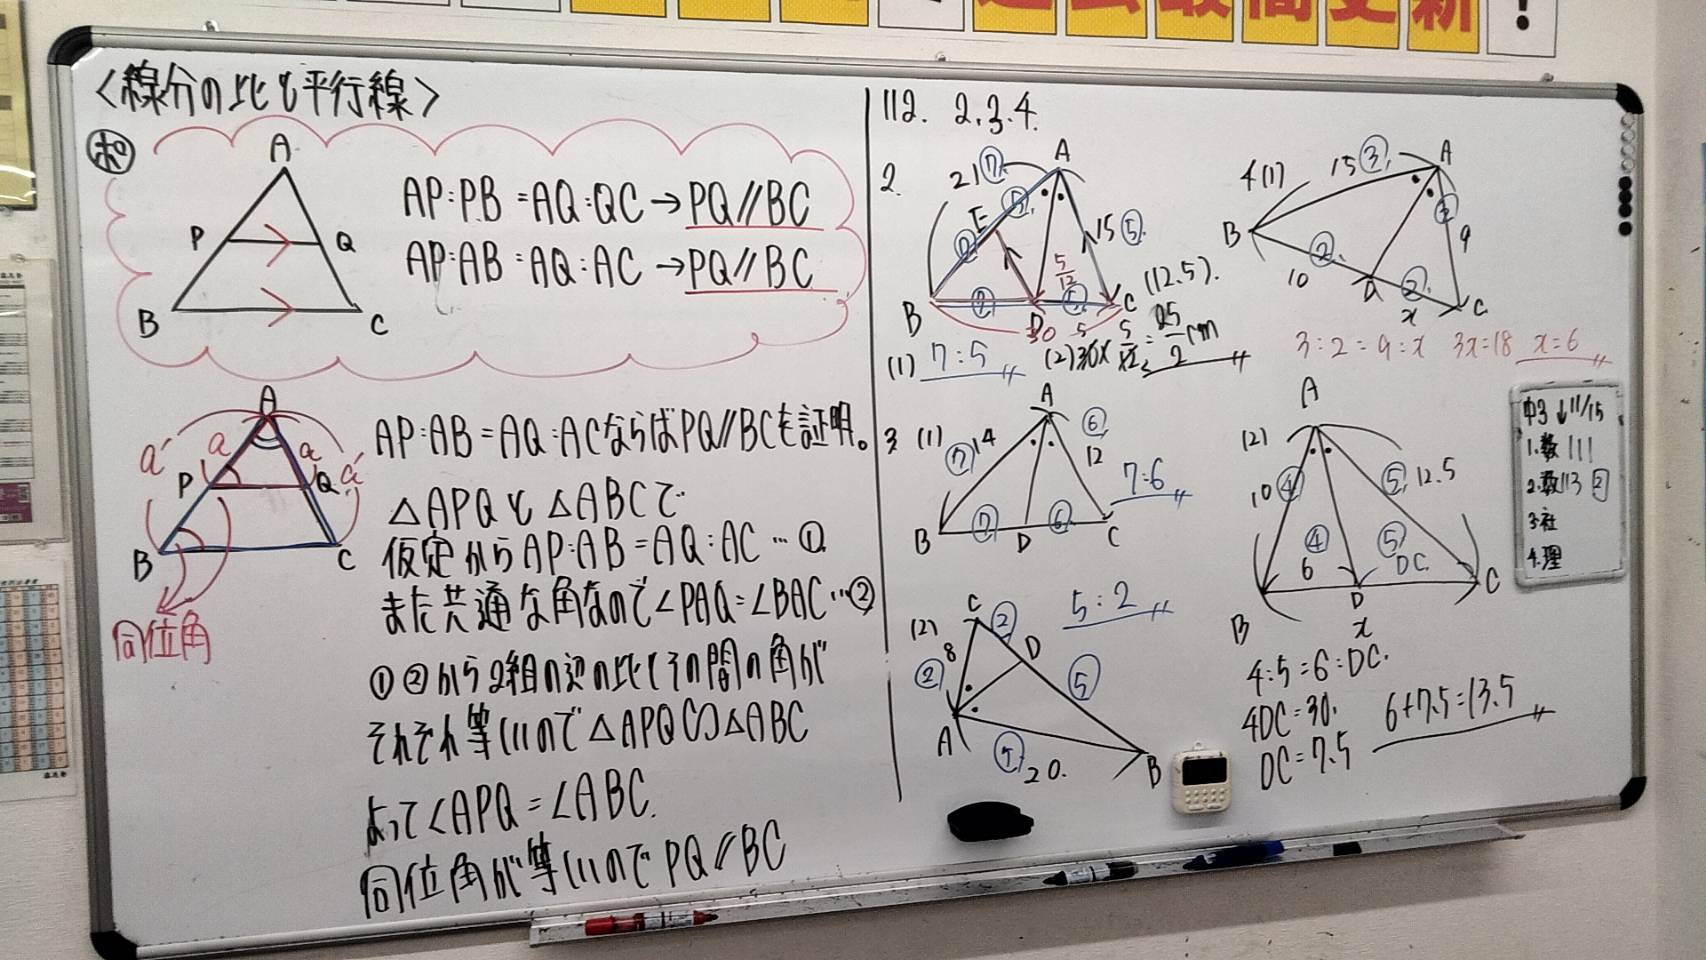 過去最高更新!
<線分の比と平行線>
ポ
A
P
Q
B
C
AP:PB=AQ:QC→PQ//BC
AP:AB=AQ:AC→PQ//BC
A
a´
a
a
a´
P
Q
B
C
同位角
AP:AB=AQ:ACならばPQ//BCを証明。
△APQと△ABCで
仮定からAP:AB=AQ:AC…①
また共通な角なので∠PAQ=∠BAC…②
①②から2組の辺の比とその間の角が
それぞれ等しいので△APQ∽△ABC
よって∠APQ=∠ABC.
同位角が等しいのでPQ//BC
112. 2.3.4.
2.
21⑦
A
E
⑤
⑦
15⑤
5/12
B
⑦
D
⑤
C
30
(12.5).
(1) 7:5
(2)30×5/12=25/2cm
3
(1)
A
⑦14
⑥
12
7:6
B
⑦
D
⑥
C
(2)
C
②
8
D
②
⑤
5:2
A
⑤
20.
B
4(1)
15③
A
B
③
9
10
②
D
②
x
C
3:2=9:x 3x=18 x=6
(2)
A
10④
⑤12.5
④
6
⑤
DC
B
D
C
x
4:5=6:DC.
4DC=30.
DC=7.5
6+7.5=13.5
中3↓11/15
1.数111
2.数113②
3.社
4.理